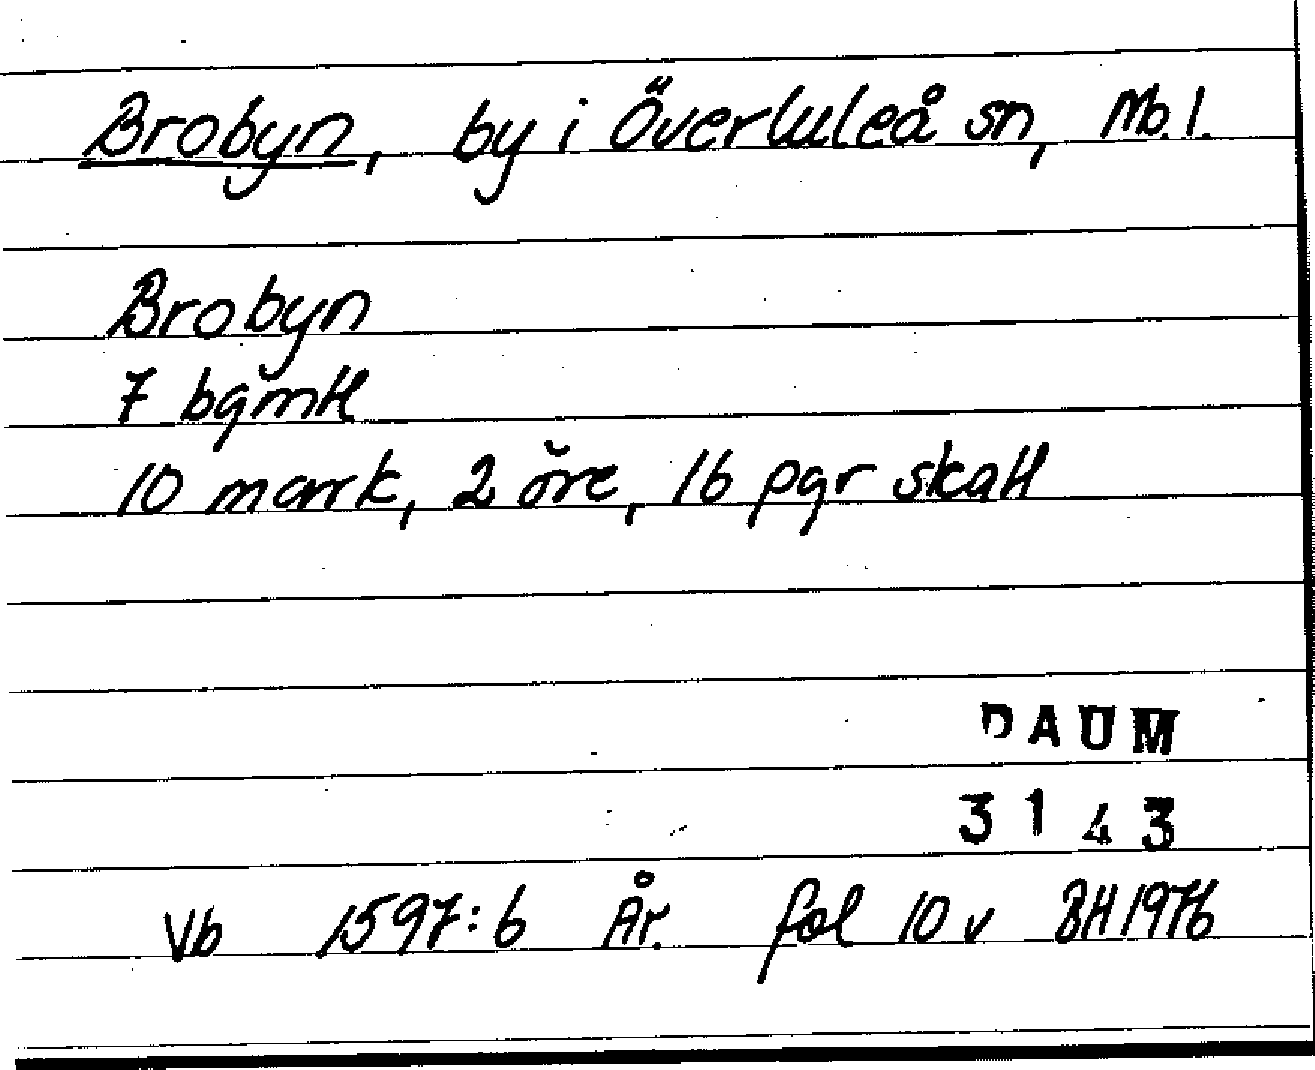 Brobyn, by i Överluleå sn, Nb.l.
Brobyn
7 bgmtl
10 mark, 2 öre, 16 pgr skatt
DAUM
3143
Vb 1597:6 År. fol 10 v BH 1976